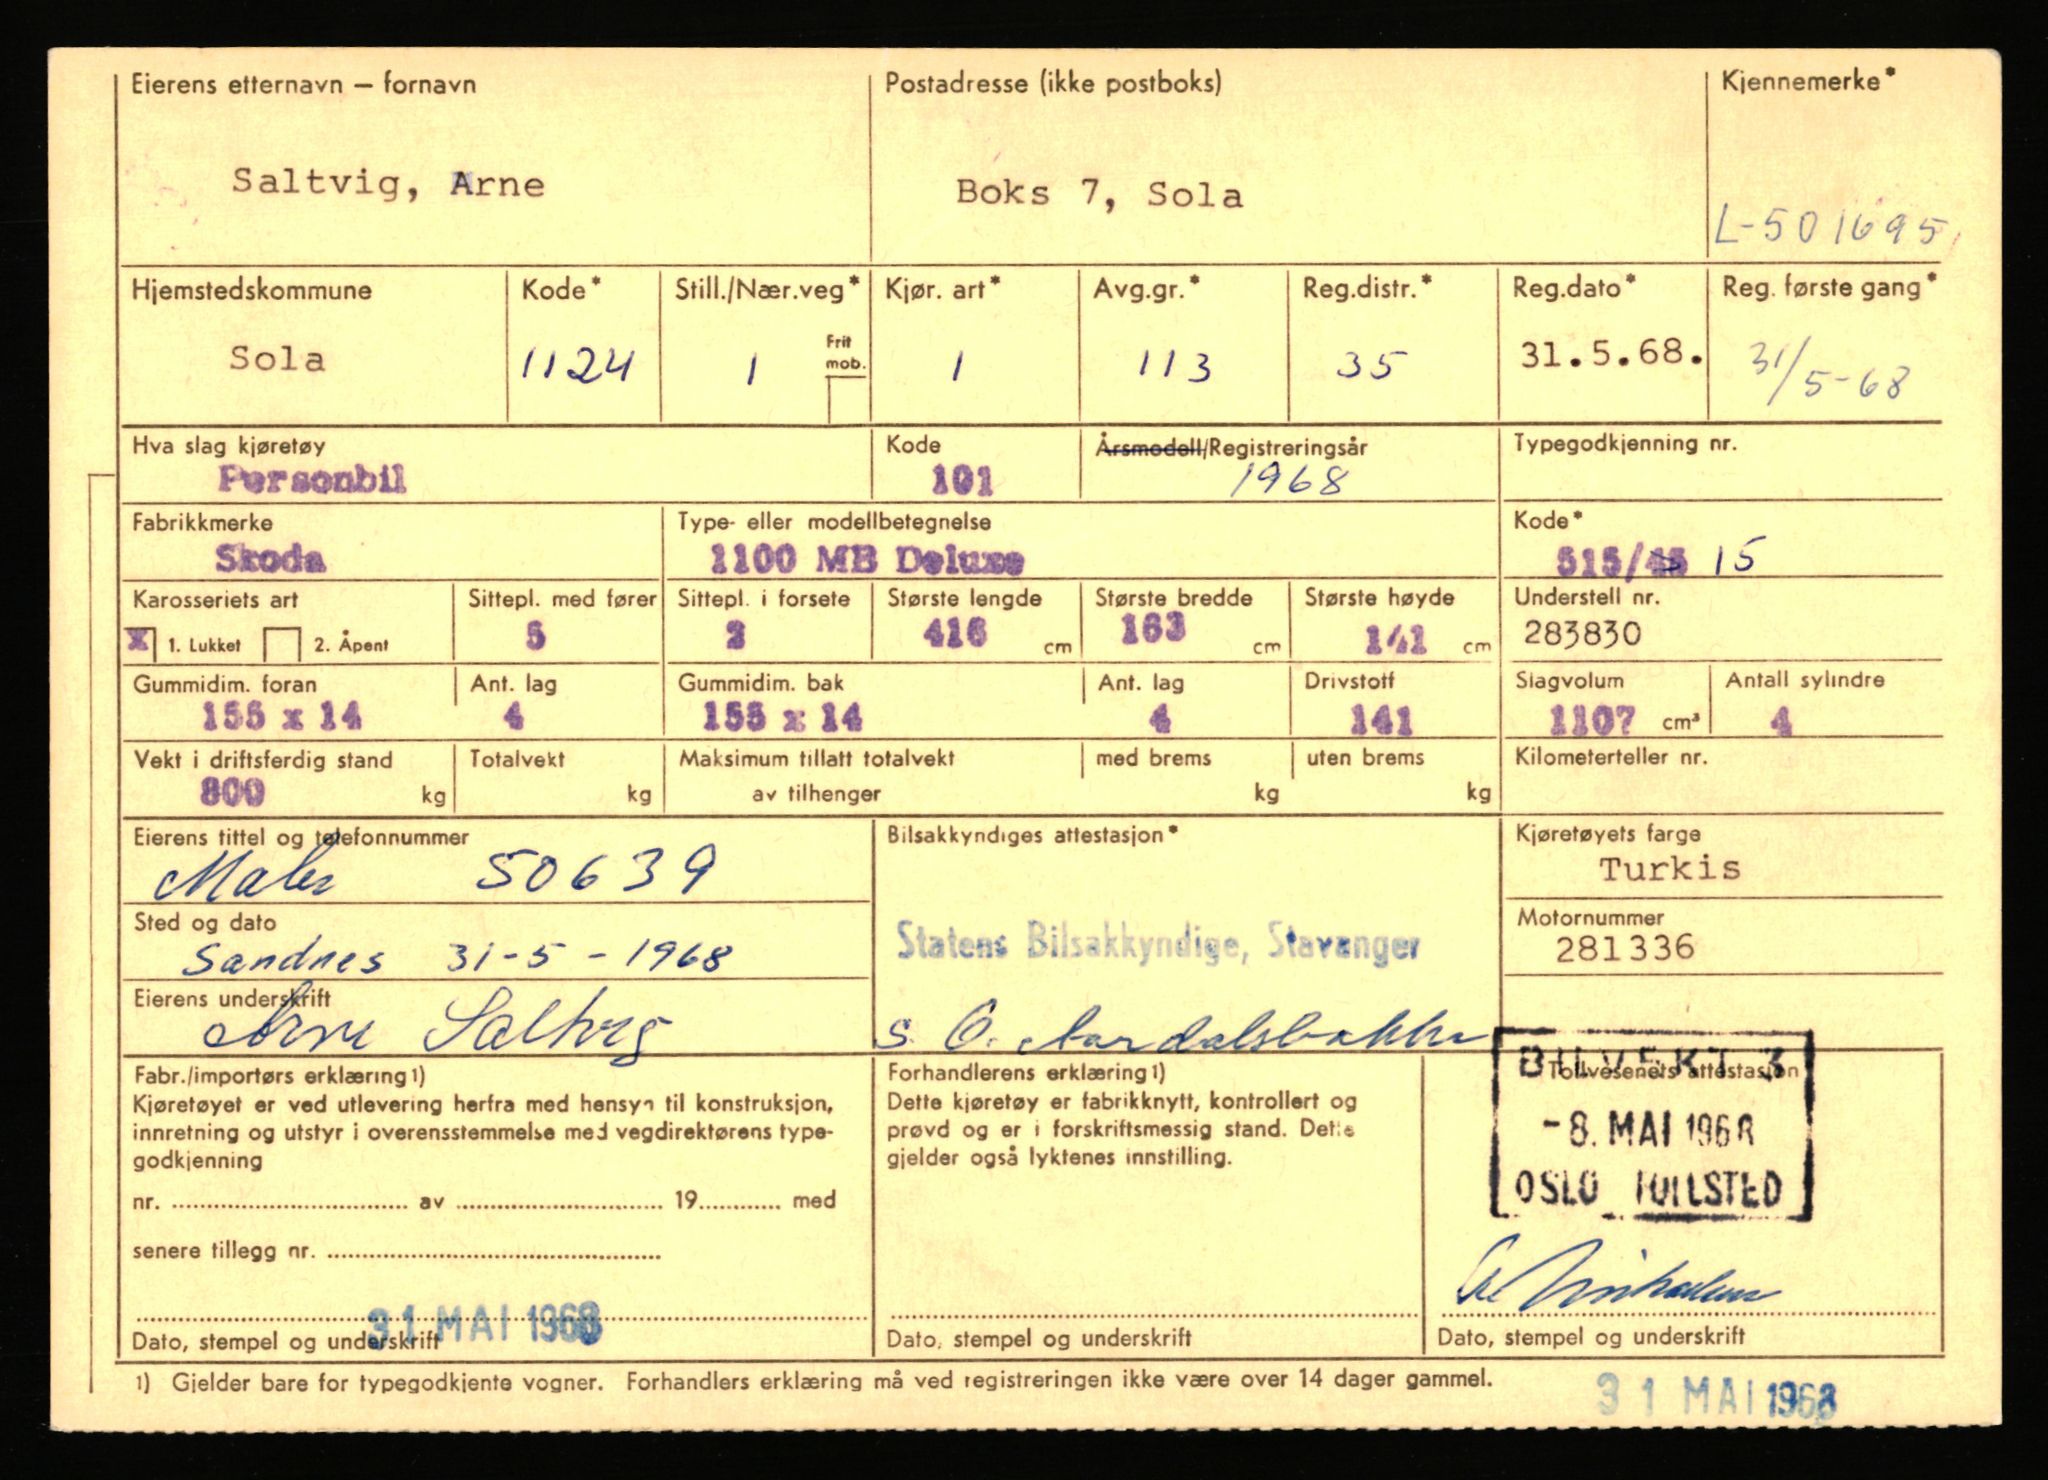 Eierens etternavn – fornavn
Postadresse (ikke postboks)
Kjennemerke*
Saltvig, Arne
Boks 7, Sola
L-501695
Hjemstedskommune
Kode*
Still./Nær.veg*
Kjør. art*
Avg.gr.*
Reg.distr.*
Reg.dato*
Reg. første gang*
Sola
1124
1
Frit mob.
1
113
35
31.5.68.
31/5-68
Hva slag kjøretøy
Kode
Årsmodell/Registreringsår
Typegodkjenning nr.
Personbil
101
1968
Fabrikkmerke
Type- eller modellbetegnelse
Kode*
Skoda
1100 MB Deluxe
515/45 15
Karosseriets art
Sittepl. med fører
Sittepl. i forsete
Største lengde
Største bredde
Største høyde
Understell nr.
x 1. Lukket
2. Åpent
5
2
416 cm
163 cm
141 cm
283830
Gummidim. foran
Ant. lag
Gummidim. bak
Ant. lag
Drivstoff
Slagvolum
Antall sylindre
155 x 14
4
155 x 14
4
141
1107 cm³
4
Vekt i driftsferdig stand
Totalvekt
Maksimum tillatt totalvekt
med brems
uten brems
Kilometerteller nr.
800 kg
kg
av tilhenger
kg
kg
Eierens tittel og telefonnummer
Bilsakkyndiges attestasjon*
Kjøretøyets farge
Maler 50639
Turkis
Sted og dato
Motornummer
Sandnes 31-5-1968
Statens Bilsakkyndige, Stavanger
281336
Eierens underskrift
Arne Saltvig
S. O. Aardalsbakke
Fabr./importørs erklæring 1)
Forhandlerens erklæring 1)
Tollvesenets attestasjon
BILVEKT 3
Kjøretøyet er ved utlevering herfra med hensyn til konstruksjon,
innretning og utstyr i overensstemmelse med vegdirektørens type-
godkjenning
Dette kjøretøy er fabrikknytt, kontrollert og
prøvd og er i forskriftsmessig stand. Dette
gjelder også lyktenes innstilling.
-8. MAI 1968
OSLO TOLLSTED
nr. .......... av .......... 19.......... med
senere tillegg nr. ..........
31 MAI 1968
Dato, stempel og underskrift
Dato, stempel og underskrift
Dato, stempel og underskrift
1) Gjelder bare for typegodkjente vogner. Forhandlers erklæring må ved registreringen ikke være over 14 dager gammel.
31 MAI 1968